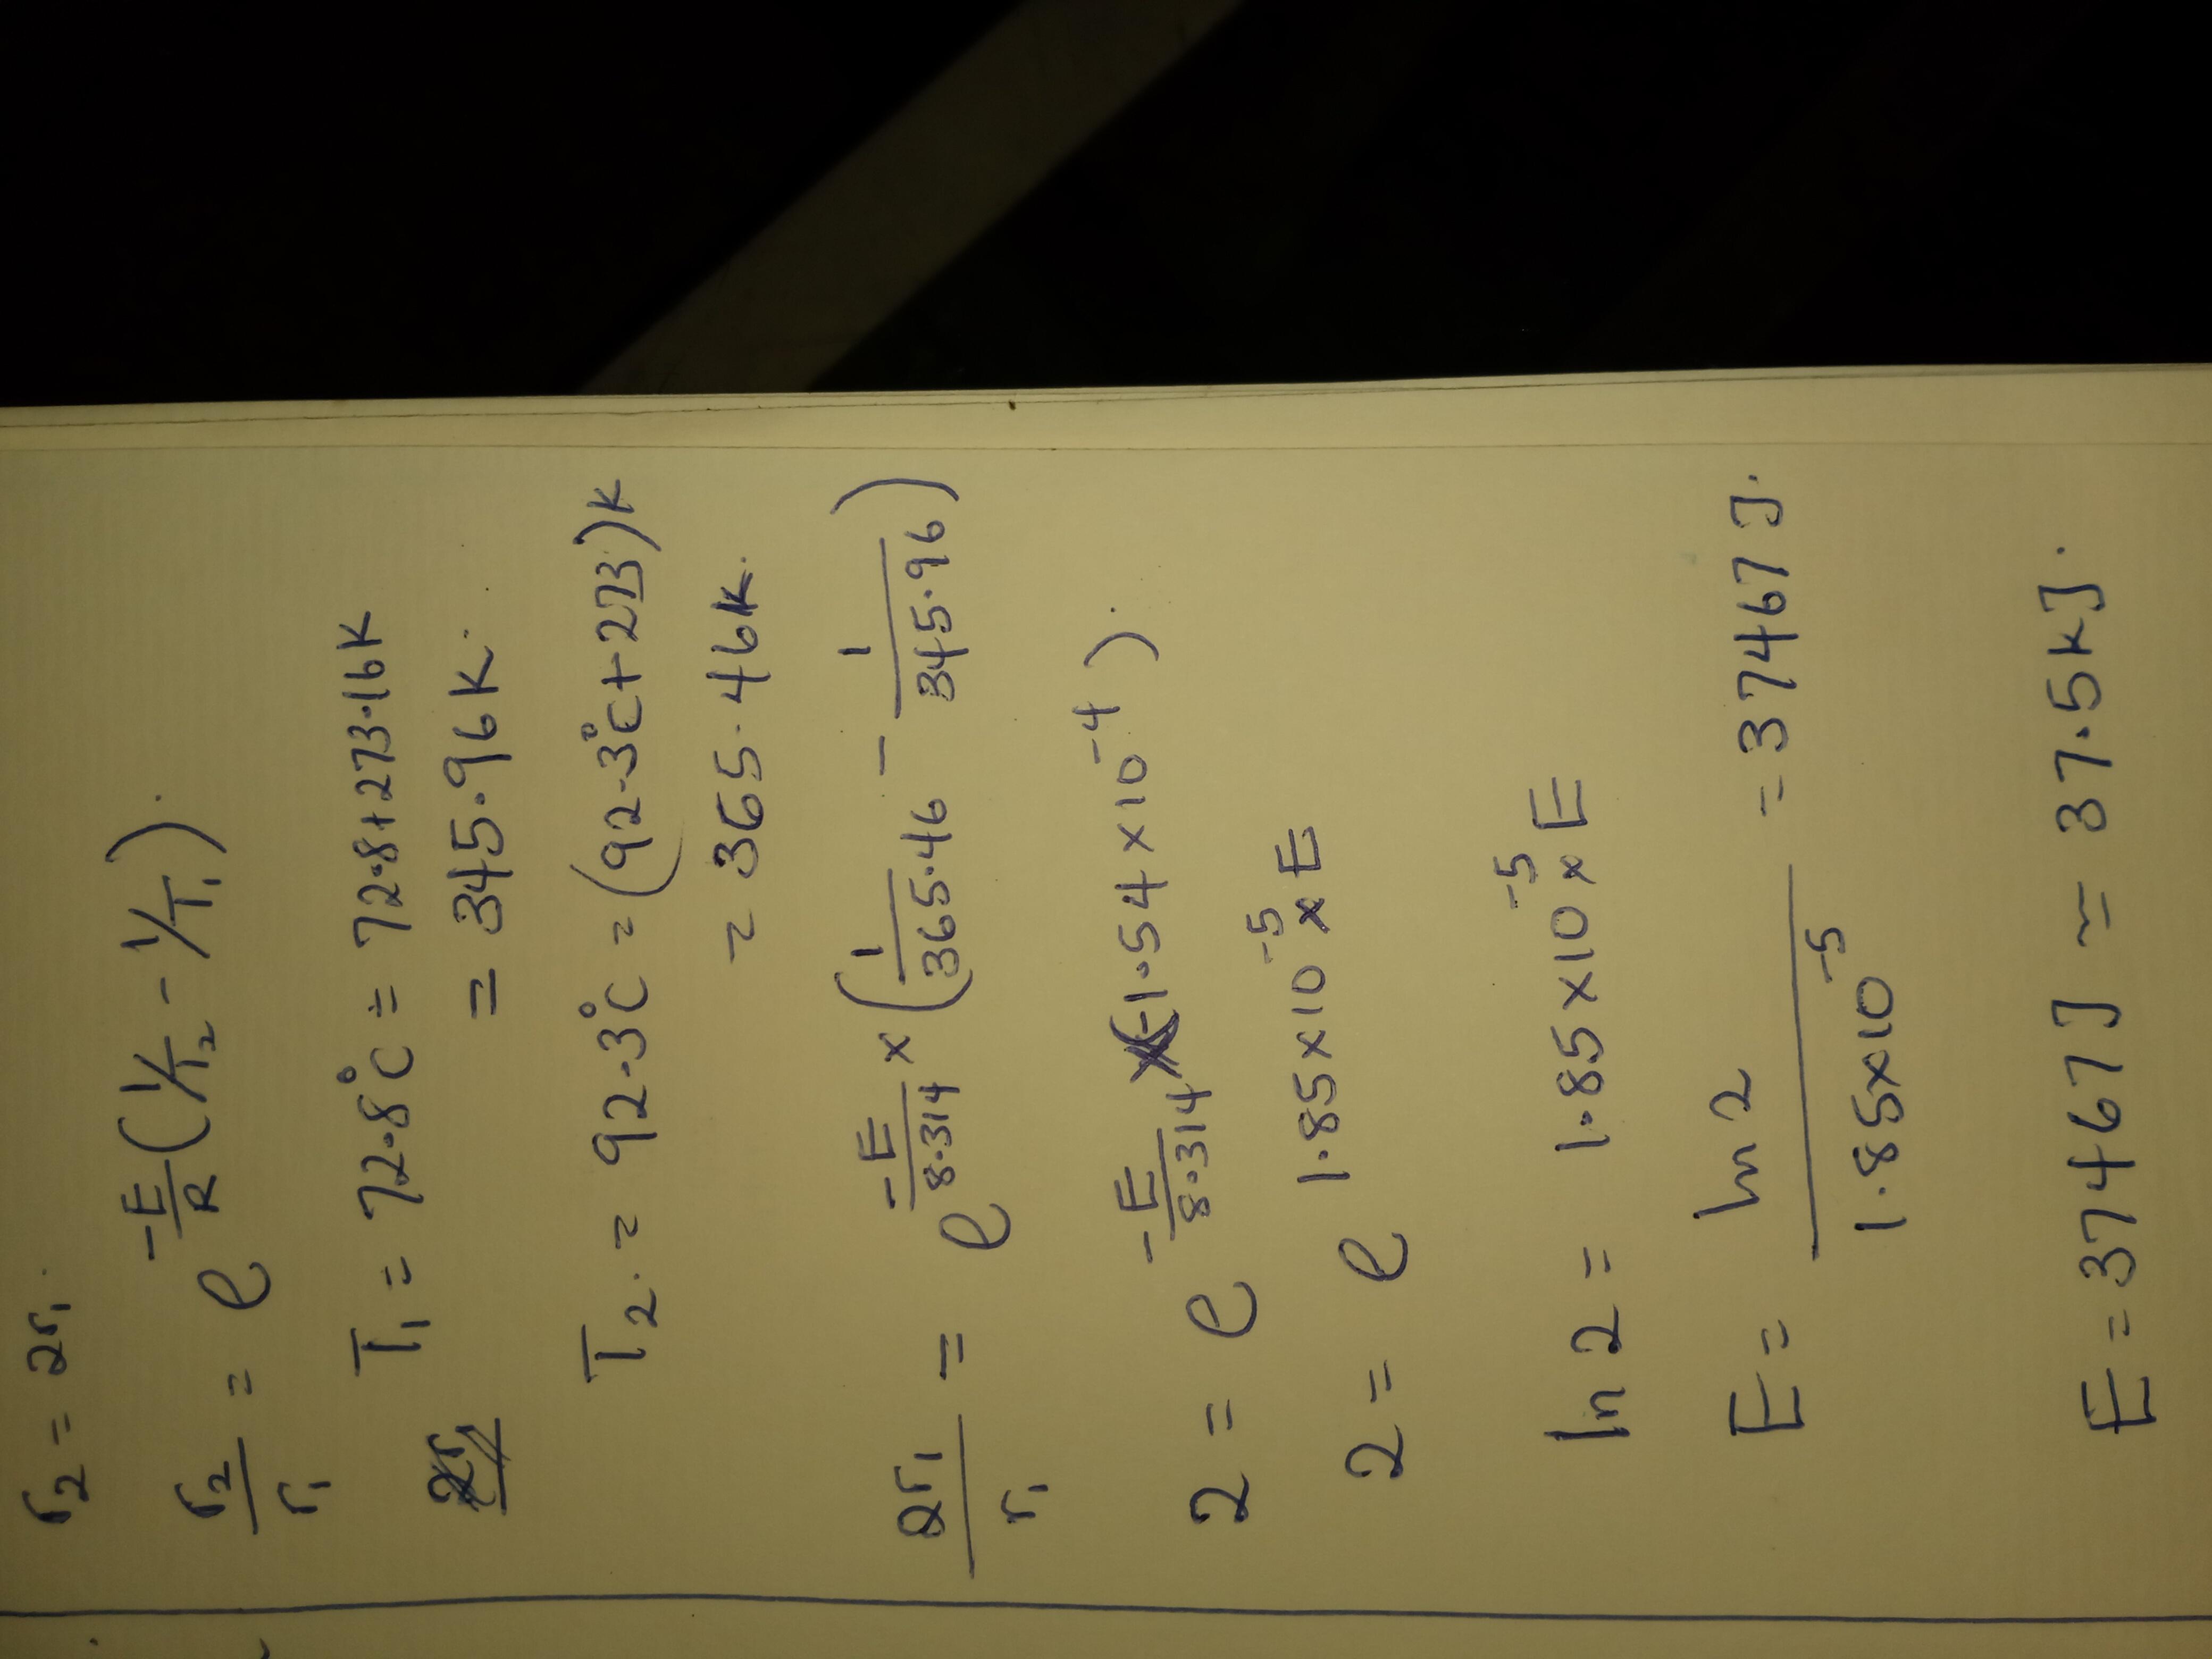 r₂ = 2r₁.
r₂/r₁ = e^(-E/R (1/T₂ - 1/T₁)).
T₁ = 72.8°C = 72.8+273.16K
= 345.96K.
T₂. = 92.3°C = (92.3°C+273)K
= 365.46K.
2r₁/r₁ = e^(-E/8.314 × (1/365.46 - 1/345.96))
2 = e^(-E/8.314 ×(-1.54×10⁻⁴)).
2 = e^(1.85×10⁻⁵×E)
ln 2 = 1.85×10⁻⁵×E
E = ln 2/1.85×10⁻⁵ = 37467J.
E = 37467J ≈ 37.5KJ.